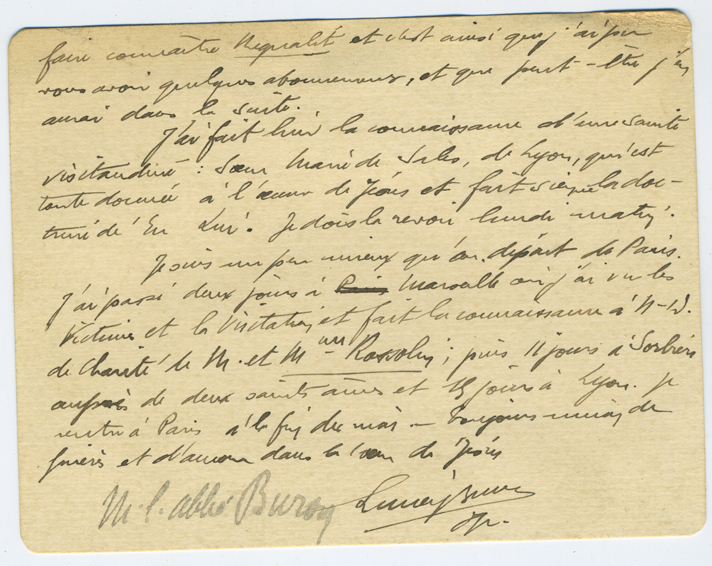 faire connaître et c'est ainsi que j'ai pu
vous avoir quelques abonnements, et que peut-être j'en
aurai dans la suite.
J'ai fait hier la connaissance d'une sainte
visitandine : Sœur Marie de Sales, de Lyon, qui s'est
toute donnée à l'œuvre de Jésus et fait la doc-
trine d' "En Lui". Je dois la revoir lundi matin.
Je suis un peu mieux qu'au départ de Paris.
J'ai passé deux jours à Marseille où j'ai vu les
Victimes et la Visitation et fait la connaissance à N-D.
de Charité de M. et Mme ; puis 11 jours à
auprès de deux saintes âmes et 15 jours à Lyon. Je
rentre à Paris à la fin du mois — Toujours union de
prières et d'amour dans le Cœur de Jésus
M. l'abbé Buron